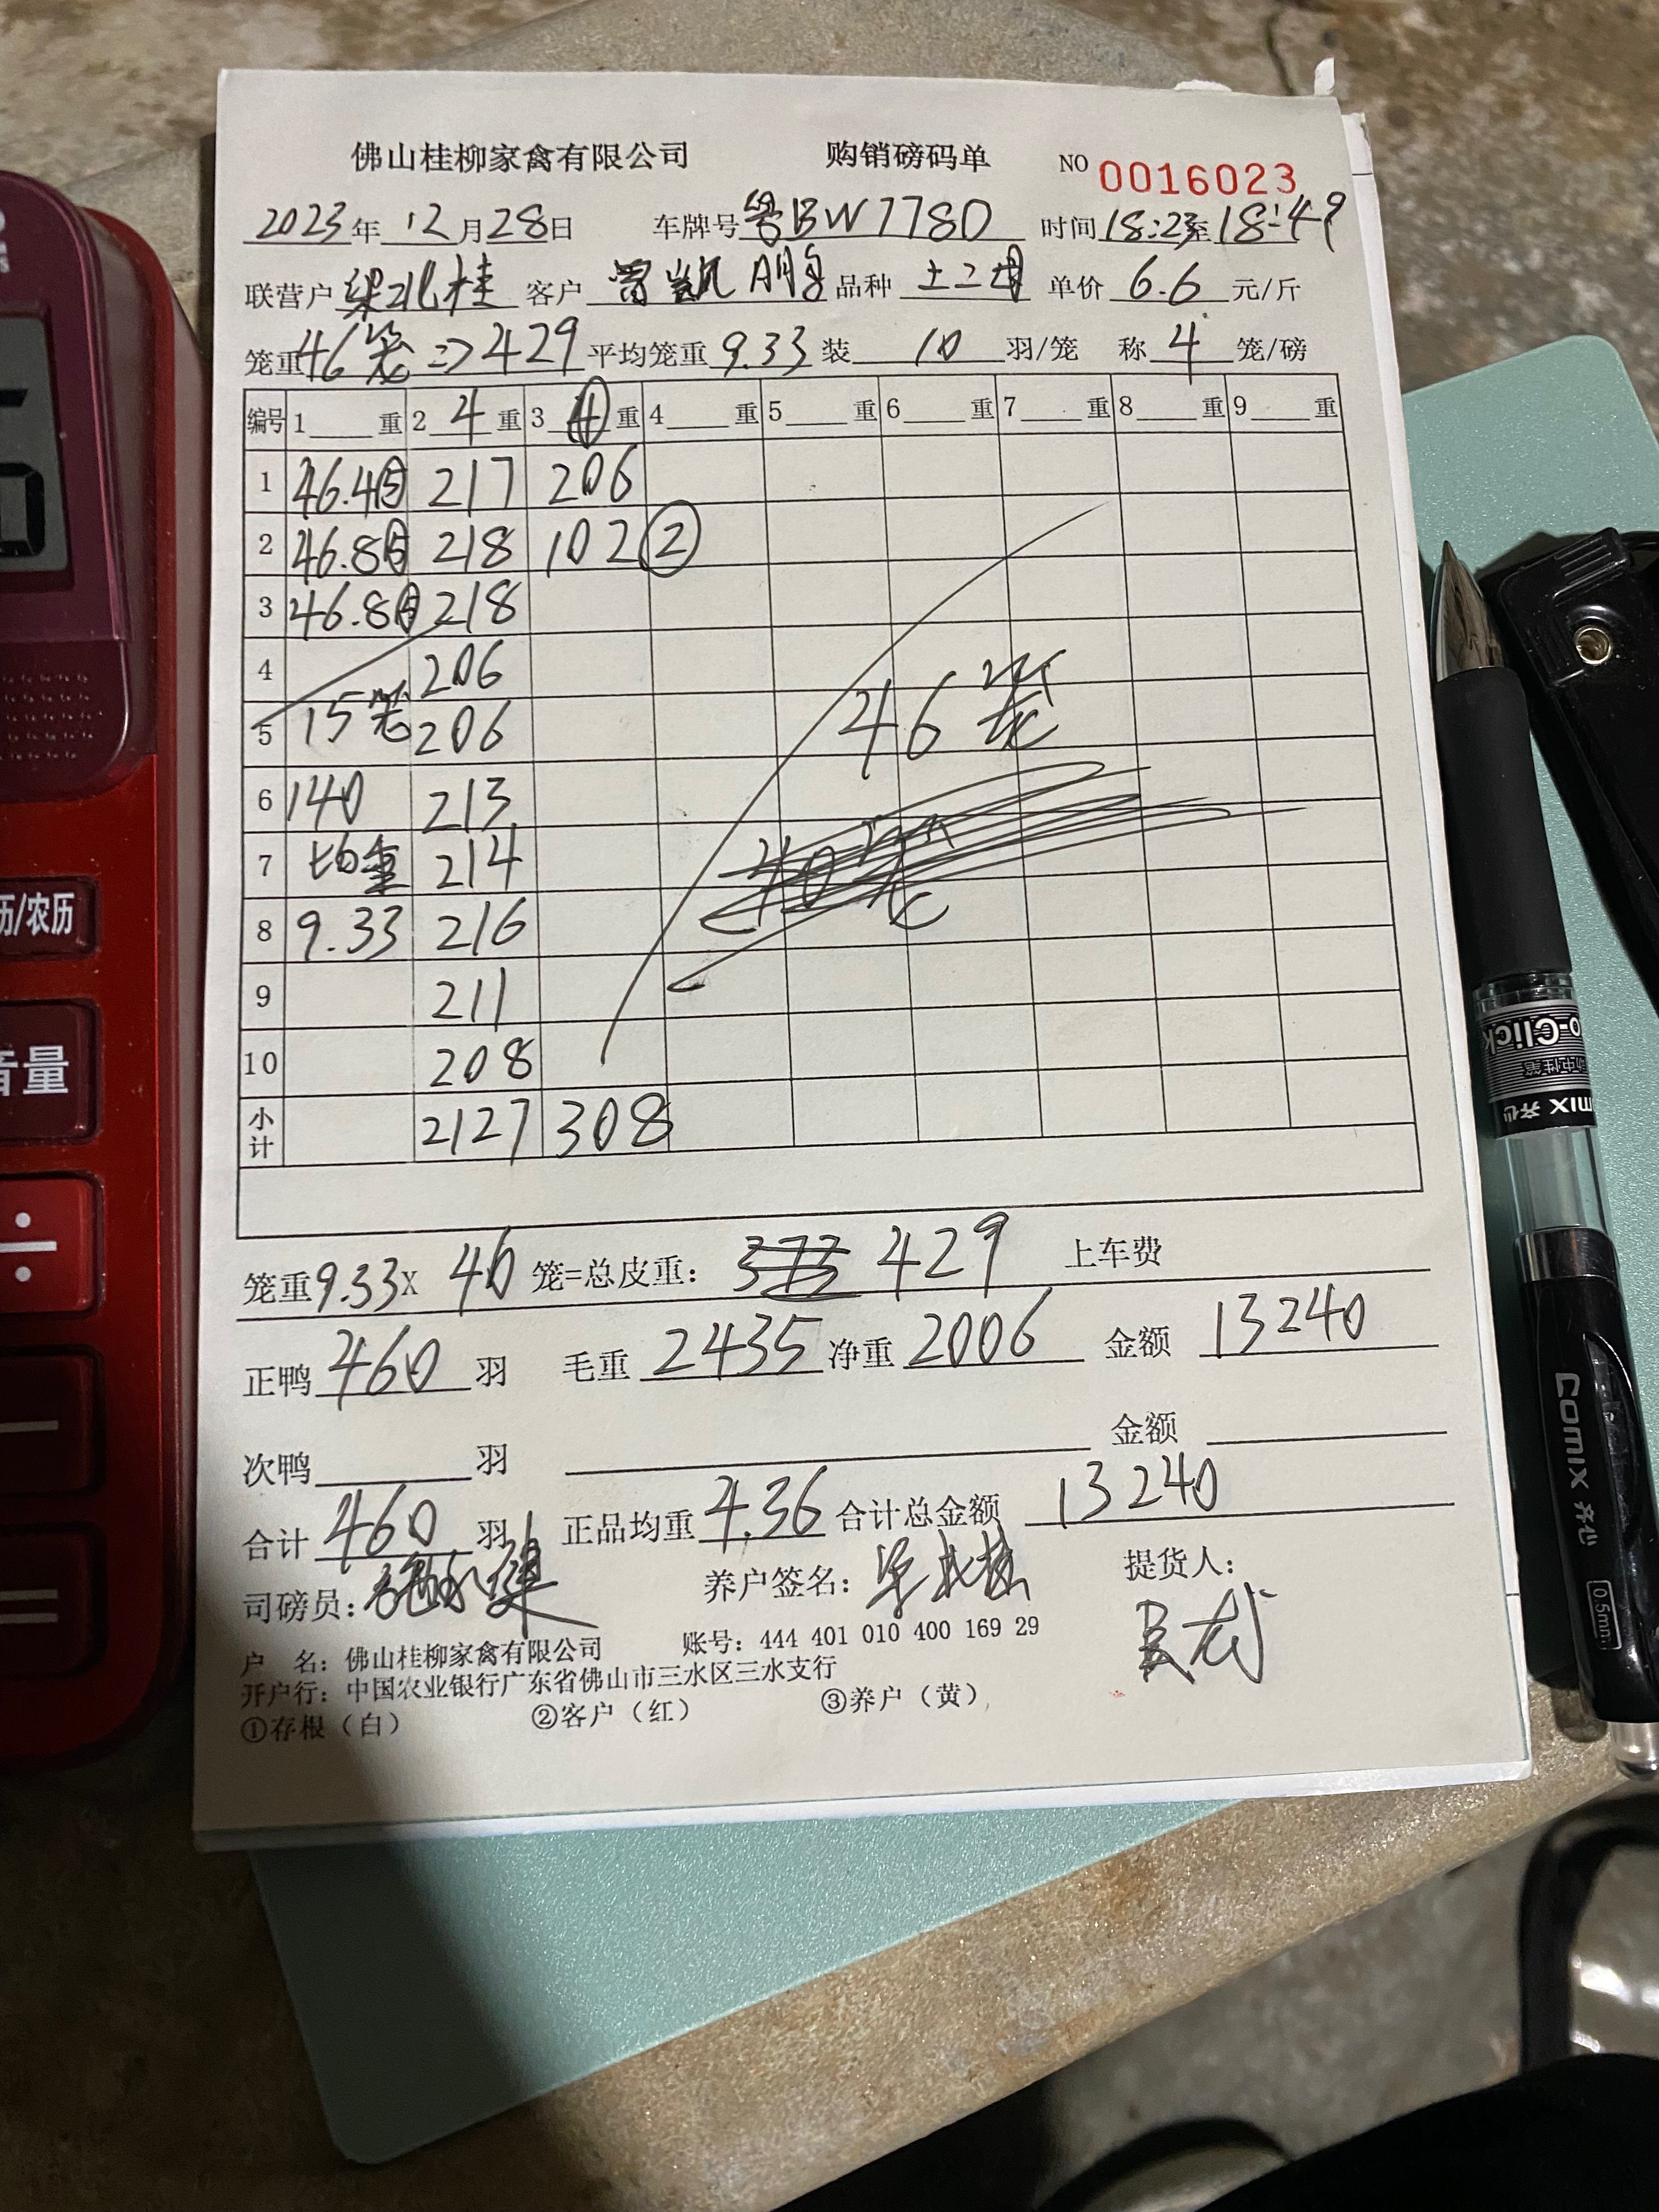 佛山桂柳家禽有限公司 购销磅码单 NO 0016023
2023年12月28日 车牌号粤BW778D 时间18:23至18:49
联营户梁北桂 客户曾凯鹏 品种土二母 单价6.6元/斤
笼重46笼=>429 平均笼重9.33装10羽/笼 称4笼/磅
编号 1 重 2 4 重 3 4 重 4 重 5 重 6 重 7 重 8 重 9 重
1 46.4⑤ 217 206
2 46.8⑤ 218 102②
3 46.8⑤ 218
4 206
5 15笼 206 46笼
6 140 213
7 均重 214 40笼
8 9.33 216
9 211
10 208
小计 2127 308
笼重9.33X 46笼=总皮重: 373 429 上车费
正鸭460羽 毛重2435净重2006 金额13240
次鸭 羽 金额
合计460羽 正品均重4.36合计总金额13240
司磅员: 养户签名:梁北桂 提货人:
户 名: 佛山桂柳家禽有限公司 账号: 444 401 010 400 169 29
开户行: 中国农业银行广东省佛山市三水区三水支行
①存根(白) ②客户(红) ③养户(黄)
历/农历
音量
÷
−
=
o-Click
comix 齐心
0.5mm